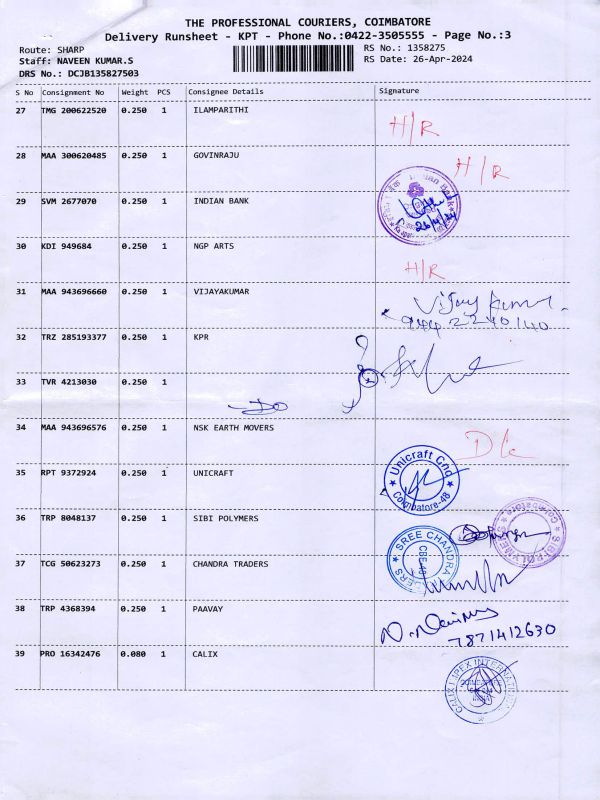 THE PROFESSIONAL COURIERS, COIMBATORE
Delivery Runsheet - KPT - Phone No.:0422-3505555 - Page No.:3
Route: SHARP
RS No.: 1358275
Staff: NAVEEN KUMAR.S
RS Date: 26-Apr-2024
DRS No.: DCJB135827503
S No Consignment No Weight PCS Consignee Details Signature
27 TMG 200622520 0.250 1 ILAMPARITHI
H/R
28 MAA 300620485 0.250 1 GOVINRAJU
H/R
29 SVM 2677070 0.250 1 INDIAN BANK
26/4/24
30 KDI 949684 0.250 1 NGP ARTS
H/R
31 MAA 943696660 0.250 1 VIJAYAKUMAR
Vijay Kumar
944 2240140
32 TRZ 285193377 0.250 1 KPR
33 TVR 4213030 0.250 1
DO
34 MAA 943696576 0.250 1 NSK EARTH MOVERS
35 RPT 9372924 0.250 1 UNICRAFT
Unicraft Cnd
Coimbatore-48
36 TRP 8048137 0.250 1 SIBI POLYMERS
SIBI POLYMERS
Coimbatore
37 TCG 50623273 0.250 1 CHANDRA TRADERS
SREE CHANDRA
CBE-48
38 TRP 4368394 0.250 1 PAAVAY
7871412630
39 PRO 16342476 0.080 1 CALIX
CALIX IMPEX INTERNATIONAL